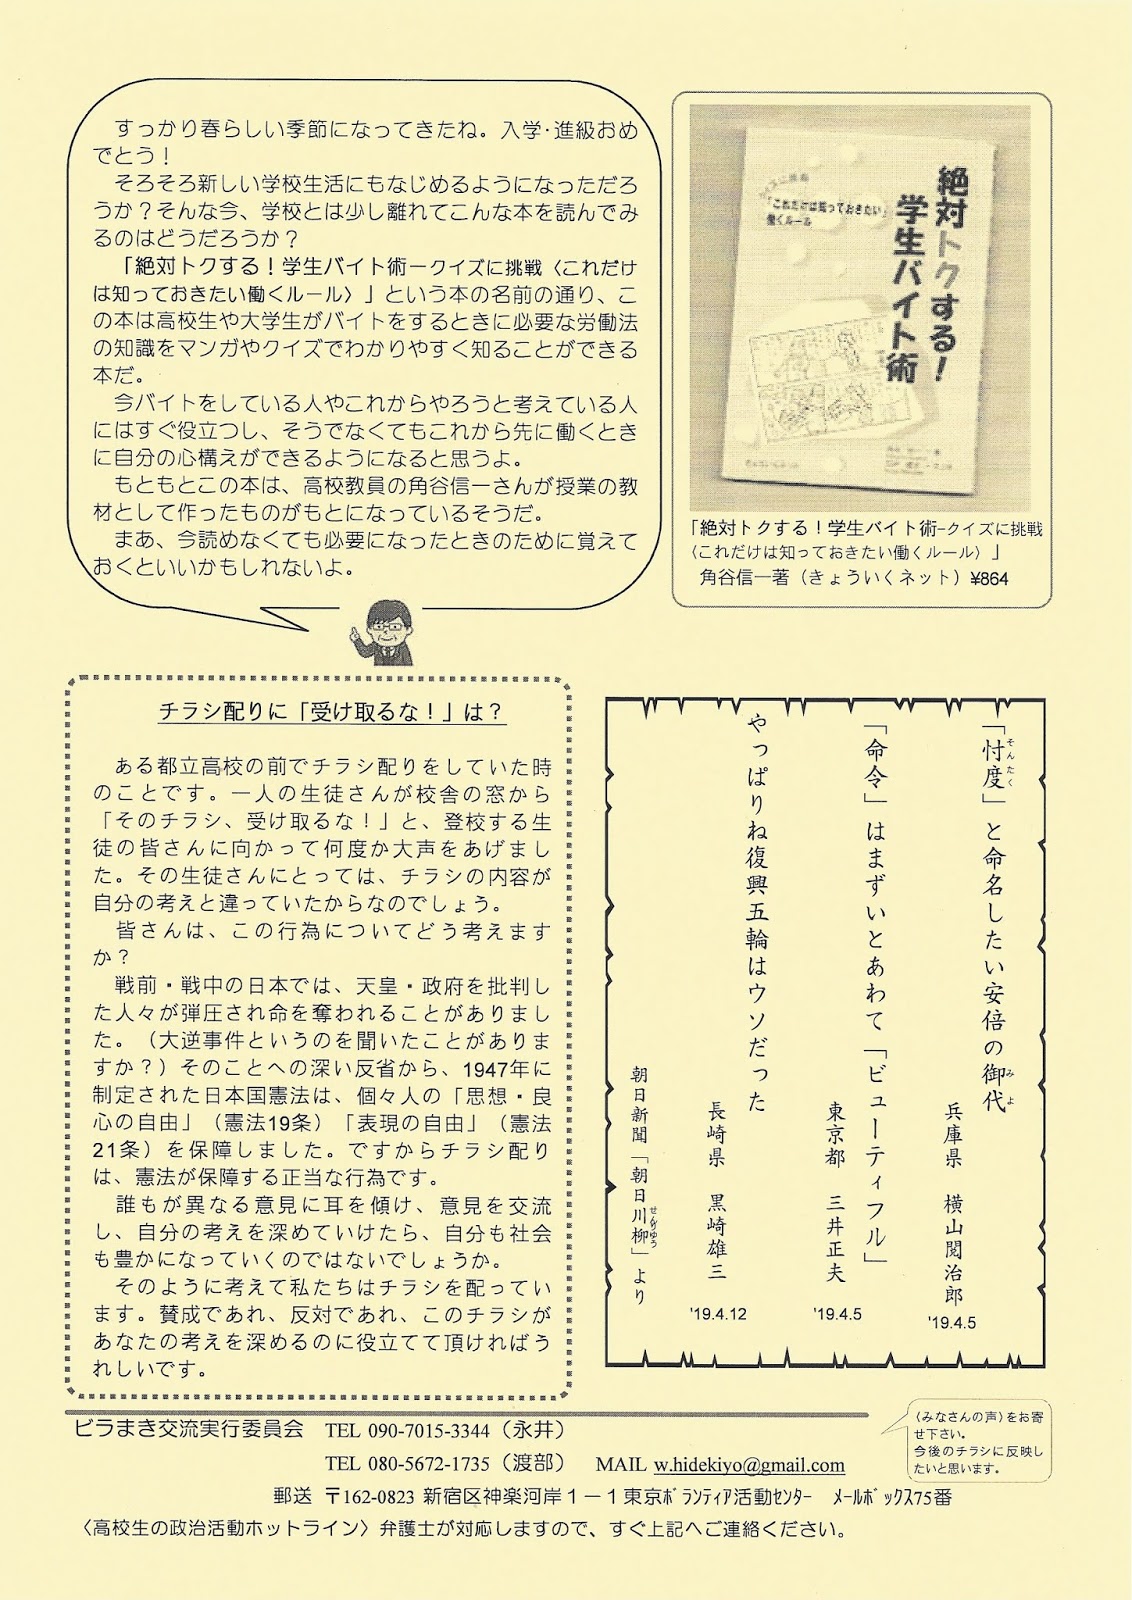 すっかり春らしい季節になってきたね。入学・進級おめ
でとう！
そろそろ新しい学校生活にもなじめるようになっただろ
うか？そんな今、学校とは少し離れてこんな本を読んでみ
るのはどうだろうか？
「絶対トクする！学生バイト術－クイズに挑戦〈これだけ
は知っておきたい働くルール〉」という本の名前の通り、こ
の本は高校生や大学生がバイトをするときに必要な労働法
の知識をマンガやクイズでわかりやすく知ることができる
本だ。
今バイトをしている人やこれからやろうと考えている人
にはすぐ役立つし、そうでなくてもこれから先に働くとき
に自分の心構えができるようになると思うよ。
もともとこの本は、高校教員の角谷信一さんが授業の教
材として作ったものがもとになっているそうだ。
まあ、今読めなくても必要になったときのために覚えて
おくといいかもしれないよ。
絶対トクする！
学生バイト術
クイズに挑戦
「これだけは知っておきたい」
働くルール
「絶対トクする！学生バイト術−クイズに挑戦
〈これだけは知っておきたい働くルール〉」
角谷信一著（きょういくネット）¥864
チラシ配りに「受け取るな！」は？
ある都立高校の前でチラシ配りをしていた時
のことです。一人の生徒さんが校舎の窓から
「そのチラシ、受け取るな！」と、登校する生
徒の皆さんに向かって何度か大声をあげまし
た。その生徒さんにとっては、チラシの内容が
自分の考えと違っていたからなのでしょう。
皆さんは、この行為についてどう考えます
か？
戦前・戦中の日本では、天皇・政府を批判し
た人々が弾圧され命を奪われることがありまし
た。（大逆事件というのを聞いたことがありま
すか？）そのことへの深い反省から、1947年に
制定された日本国憲法は、個々人の「思想・良
心の自由」（憲法19条）「表現の自由」（憲法
21条）を保障しました。ですからチラシ配り
は、憲法が保障する正当な行為です。
誰もが異なる意見に耳を傾け、意見を交流
し、自分の考えを深めていけたら、自分も社会
も豊かになっていくのではないでしょうか。
そのように考えて私たちはチラシを配ってい
ます。賛成であれ、反対であれ、このチラシが
あなたの考えを深めるのに役立てて頂ければう
れしいです。
「忖度」と命名したい安倍の御代
そんたく
みよ
兵庫県　横山閲治郎
'19.4.5
「命令」はまずいとあわて「ビューティフル」
東京都　三井正夫
'19.4.5
やっぱりね復興五輪はウソだった
長崎県　黒崎雄三
'19.4.12
朝日新聞「朝日川柳」より
せんりゅう
ビラまき交流実行委員会　TEL 090-7015-3344（永井）
TEL 080-5672-1735（渡部）　MAIL w.hidekiyo@gmail.com
郵送　〒162-0823 新宿区神楽河岸１－１東京ﾎﾞﾗﾝﾃｨｱ活動ｾﾝﾀｰ　ﾒｰﾙﾎﾞｯｸｽ75番
〈高校生の政治活動ホットライン〉弁護士が対応しますので、すぐ上記へご連絡ください。
〈みなさんの声〉をお寄
せ下さい。
今後のチラシに反映し
たいと思います。